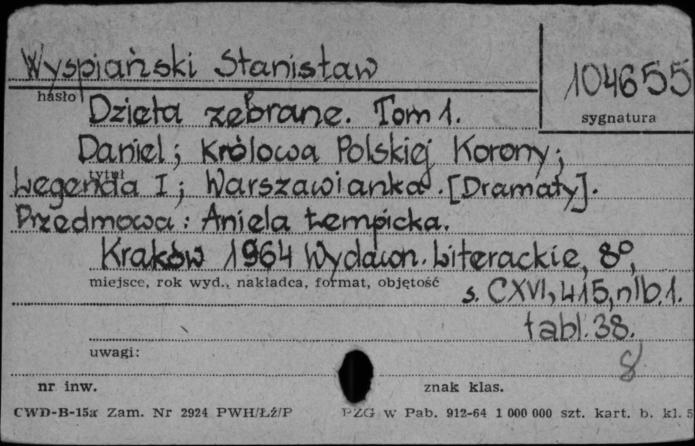 Wyspiański Stanisław
104655
hasło
sygnatura
Dzieła zebrane. Tom 1.
Daniel; Królowa Polskiej Korony;
tytuł
Legenda I; Warszawianka. [Dramaty].
Przedmowa: Aniela Łempicka.
Kraków 1964 Wydawn. Literackie, 8°,
miejsce, rok wyd., nakładca, format, objętość
s. CXVI, 415, nlb. 1.
tabl. 38.
uwagi:
8
nr inw.
znak klas.
CWD-B-15a Zam. Nr 2924 PWH/Łź/P
PZG w Pab. 912-64 1 000 000 szt. kart. b. kl. 5